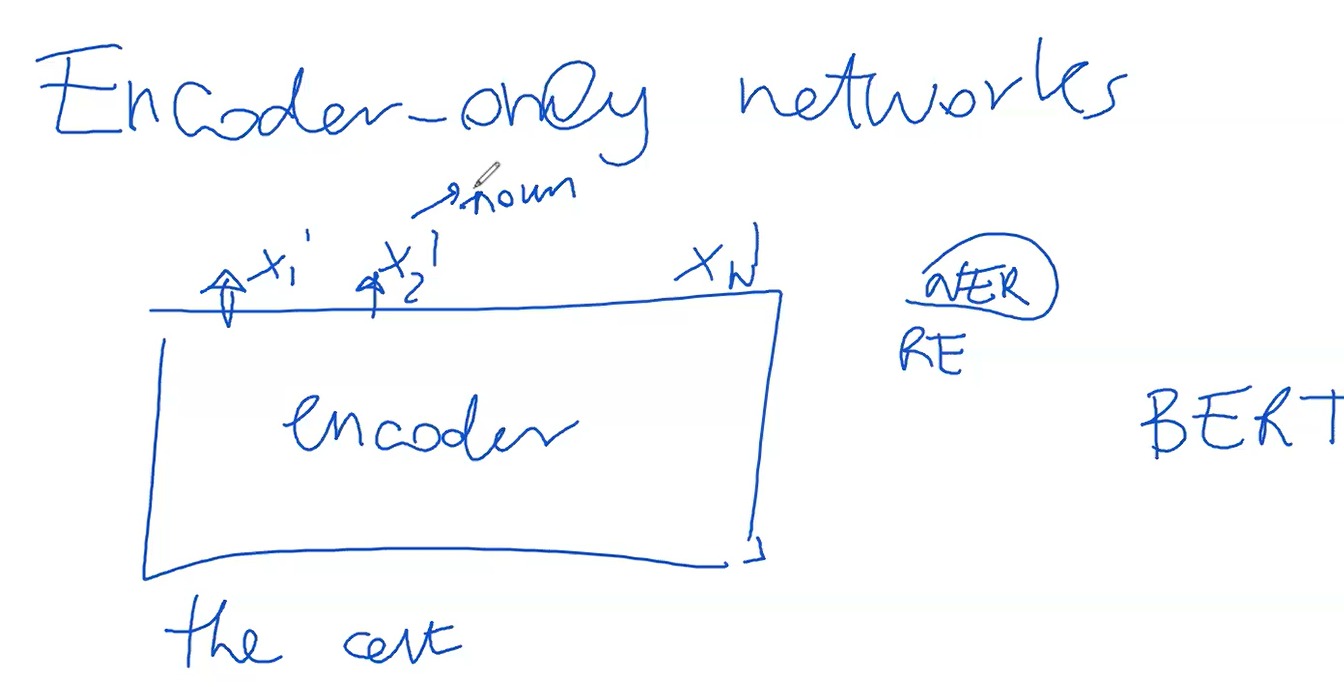 Encoder-only networks
noun
x₁' x₂' x_N'
NER
RE
encoder
BERT
the cat